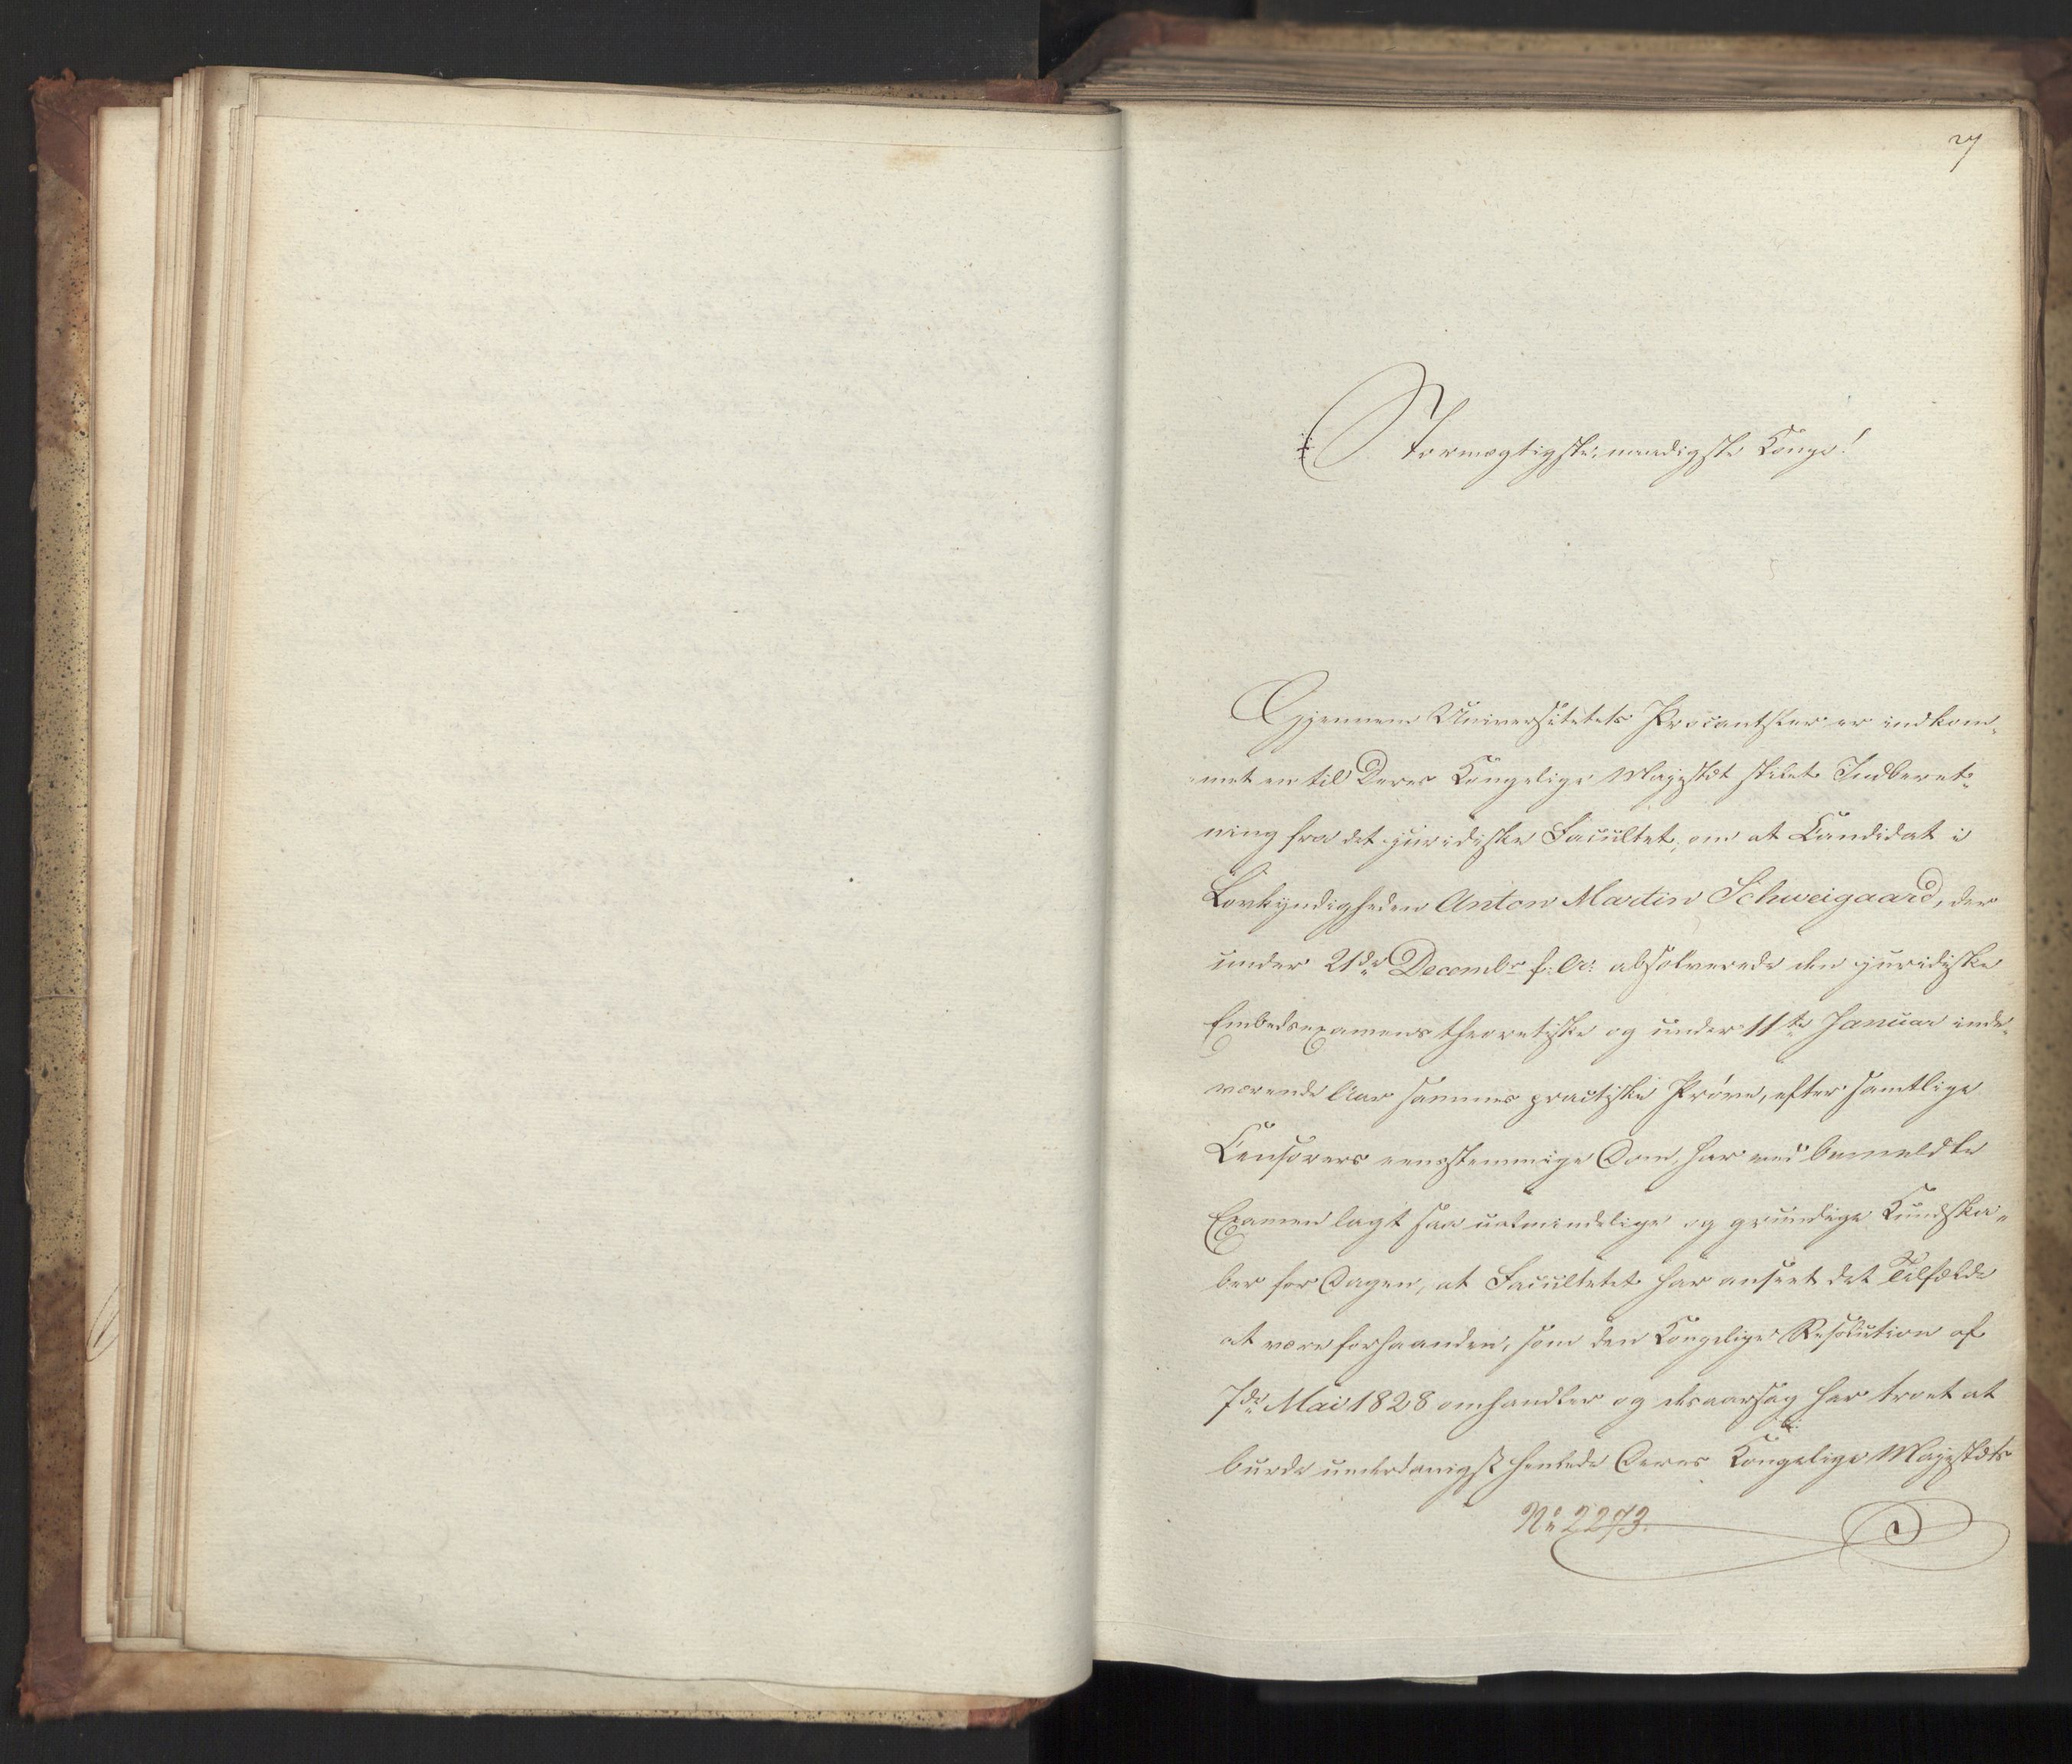 27
Stormægtigste, naadigste Konge!
Gjennem Universitetets Procantsler er indkom-
met en til Deres Kongelige Majestæt stilet Indberet-
ning fra det juridiske Facultet, om at Candidat i
Lovkyndigheden Anton Martin Schweigaard, der
under 21de Decembr f: A: absolverede den juridiske
Embedsexamens theoretiske og under 11te Januar inde-
værende Aar sammes practiske Prøve, efter samtlige
Censorers eensstemmige Dom, har ved bemeldte
Examen lagt saa ualmindelige og grundige Kundska-
ber for Dagen, at Facultetet har anseet det Tilfælde
at være forhaanden, som den Kongelige Resolution af
7de Mai 1828 omhandler og desaarsag har troet at
burde underdanigst henlede Deres Kongelige Majestæts
No 2273.